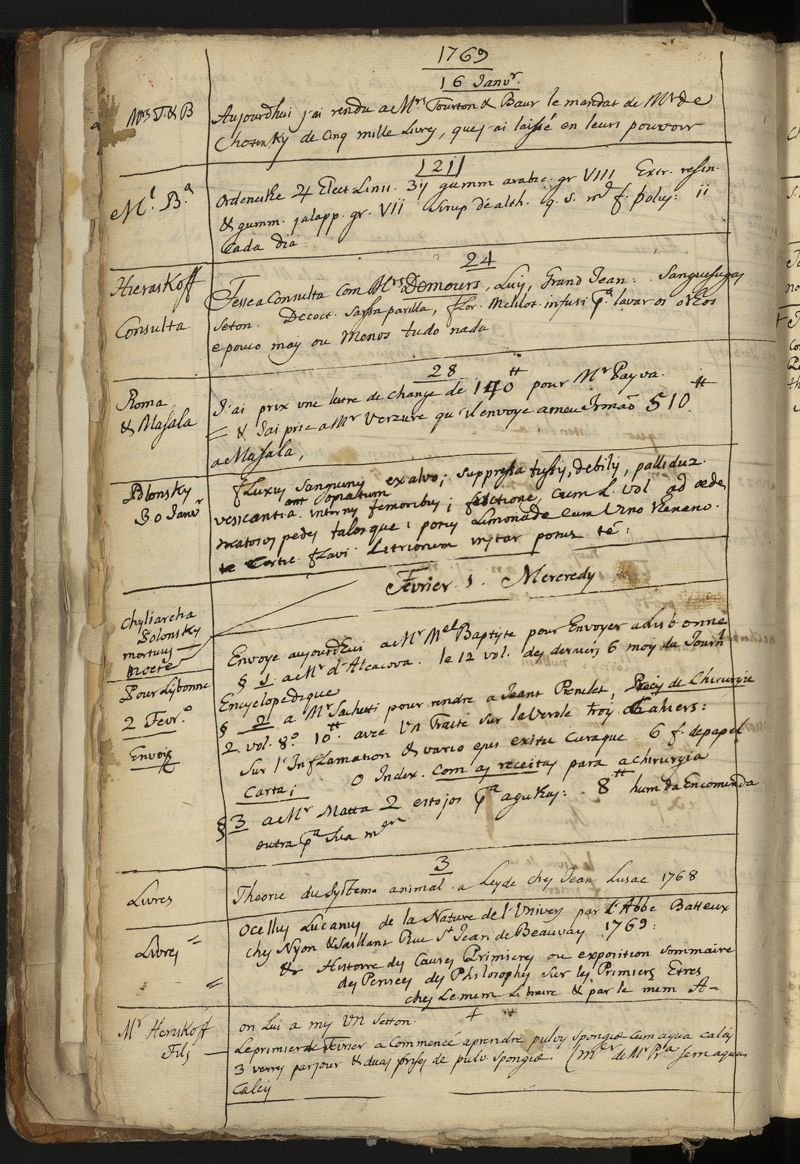 1769
16 Janvr.
Mrs T. & B
Aujourdhui j'ai rendu a Mrs Tourton & Baur le mandat de Mr de
Chotinsky de Cinq mille Livres, que j ai laissé en leurs pouvoir
21
Mr. B.a
Ordeneilhe ♃ Elect Lenit. ʒij gumm arabic. gr VIII Extr. resin.
& gumm. jalapp. gr. VII Sirup de alth. q. s. f. bolus: ii
Cada dia
24
Hieraskoff
Consulta
Fesse a Consulta com Mrs Demours, Luis, Grand Jean. Sanguesugas
Seton. Decoct. Salsa parilla, flor. Melilot. infusi p.a lavar os olhos
e pouco mays ou Menos tudo nada
28
Roma
& Masala
J'ai prix une letre de change de 140tt pour Mr Payva.
& J'ai prie a Mr Verzure qu'il envoye a meu Irmaõ 510tt
a Massala,
Polonsky
30 Janvr
fluxus sanguinis ex alvo; suppressa tussis, debilis, pallidus.
ant opiatum
vessicantia internis femoribus; frictione, cum L. Vol ad œde
matosos pedes talosque: potus Limonade cum Vino Rhenano.
Cortic flavi Citriorum instar potus té:
Fevrier 1. Mercredy
Chyliarcha
Polonsky
mortuus
nocte
Envoye aujourdhui a Mr Mel Baptiste pour Envoyer a Lisbonne
§ 1. a Mr d'Alcacova. le 12 vol. des derniers 6 moys du Journ
Encyclopedique
Pour Lisbonne
2 Fevr.o
Envois
§ 2 a Mr Sachetti pour rendre a Jean Penelet, Precis de Chirurgie
2 vol. 8.o 10tt avec Un Traité sur la Verole troys Cahiers:
Sur l'Inflamation & vario ejus exitu Curaque 6 f. de papel
Carta; O Index. Com as receitas para a chirurgia
§ 3 a Mr Matta 2 estojos p.a agulhas: 8tt hum da Encomenda
outra p.a sua mer
3
Livres
Theorie du Systeme animal. a Leyde ches Jean Lusac 1768
Livres
Ocellus Lucanus de la Nature de l'Univers par L'Abbé Batteux
ches Nyon & Saillant Rue St Jean de Beauvais 1769:
& Histoire des Causes Primieres ou exposition Sommaire
des Pensees des Philosophes Sur les Primiers Etres
ches Le mem Libraire & par le mem A-
Mr Heraskoff
Fils
on Lui a mis Un Setton.
Le primier de Fevrier a Commencé a prendre pulvis spongiæ cum aqua calcis
3 verres par jour & duas prises de pulv. spongiæ. (mer de Mr Ra sem aqua
Calcis